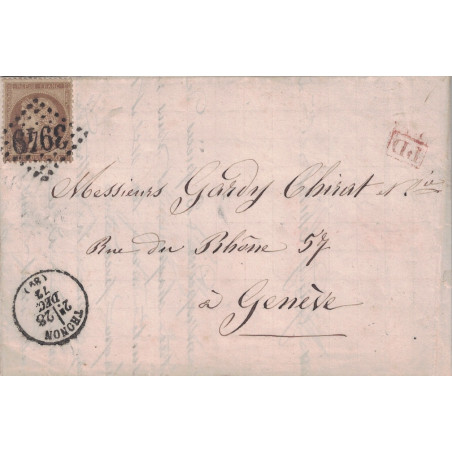 3949
PD
Messieurs Gardy Chirat et Cie
Rue du Rhône 57
à Genève
THONON
2e
28
DEC.
72
(89)